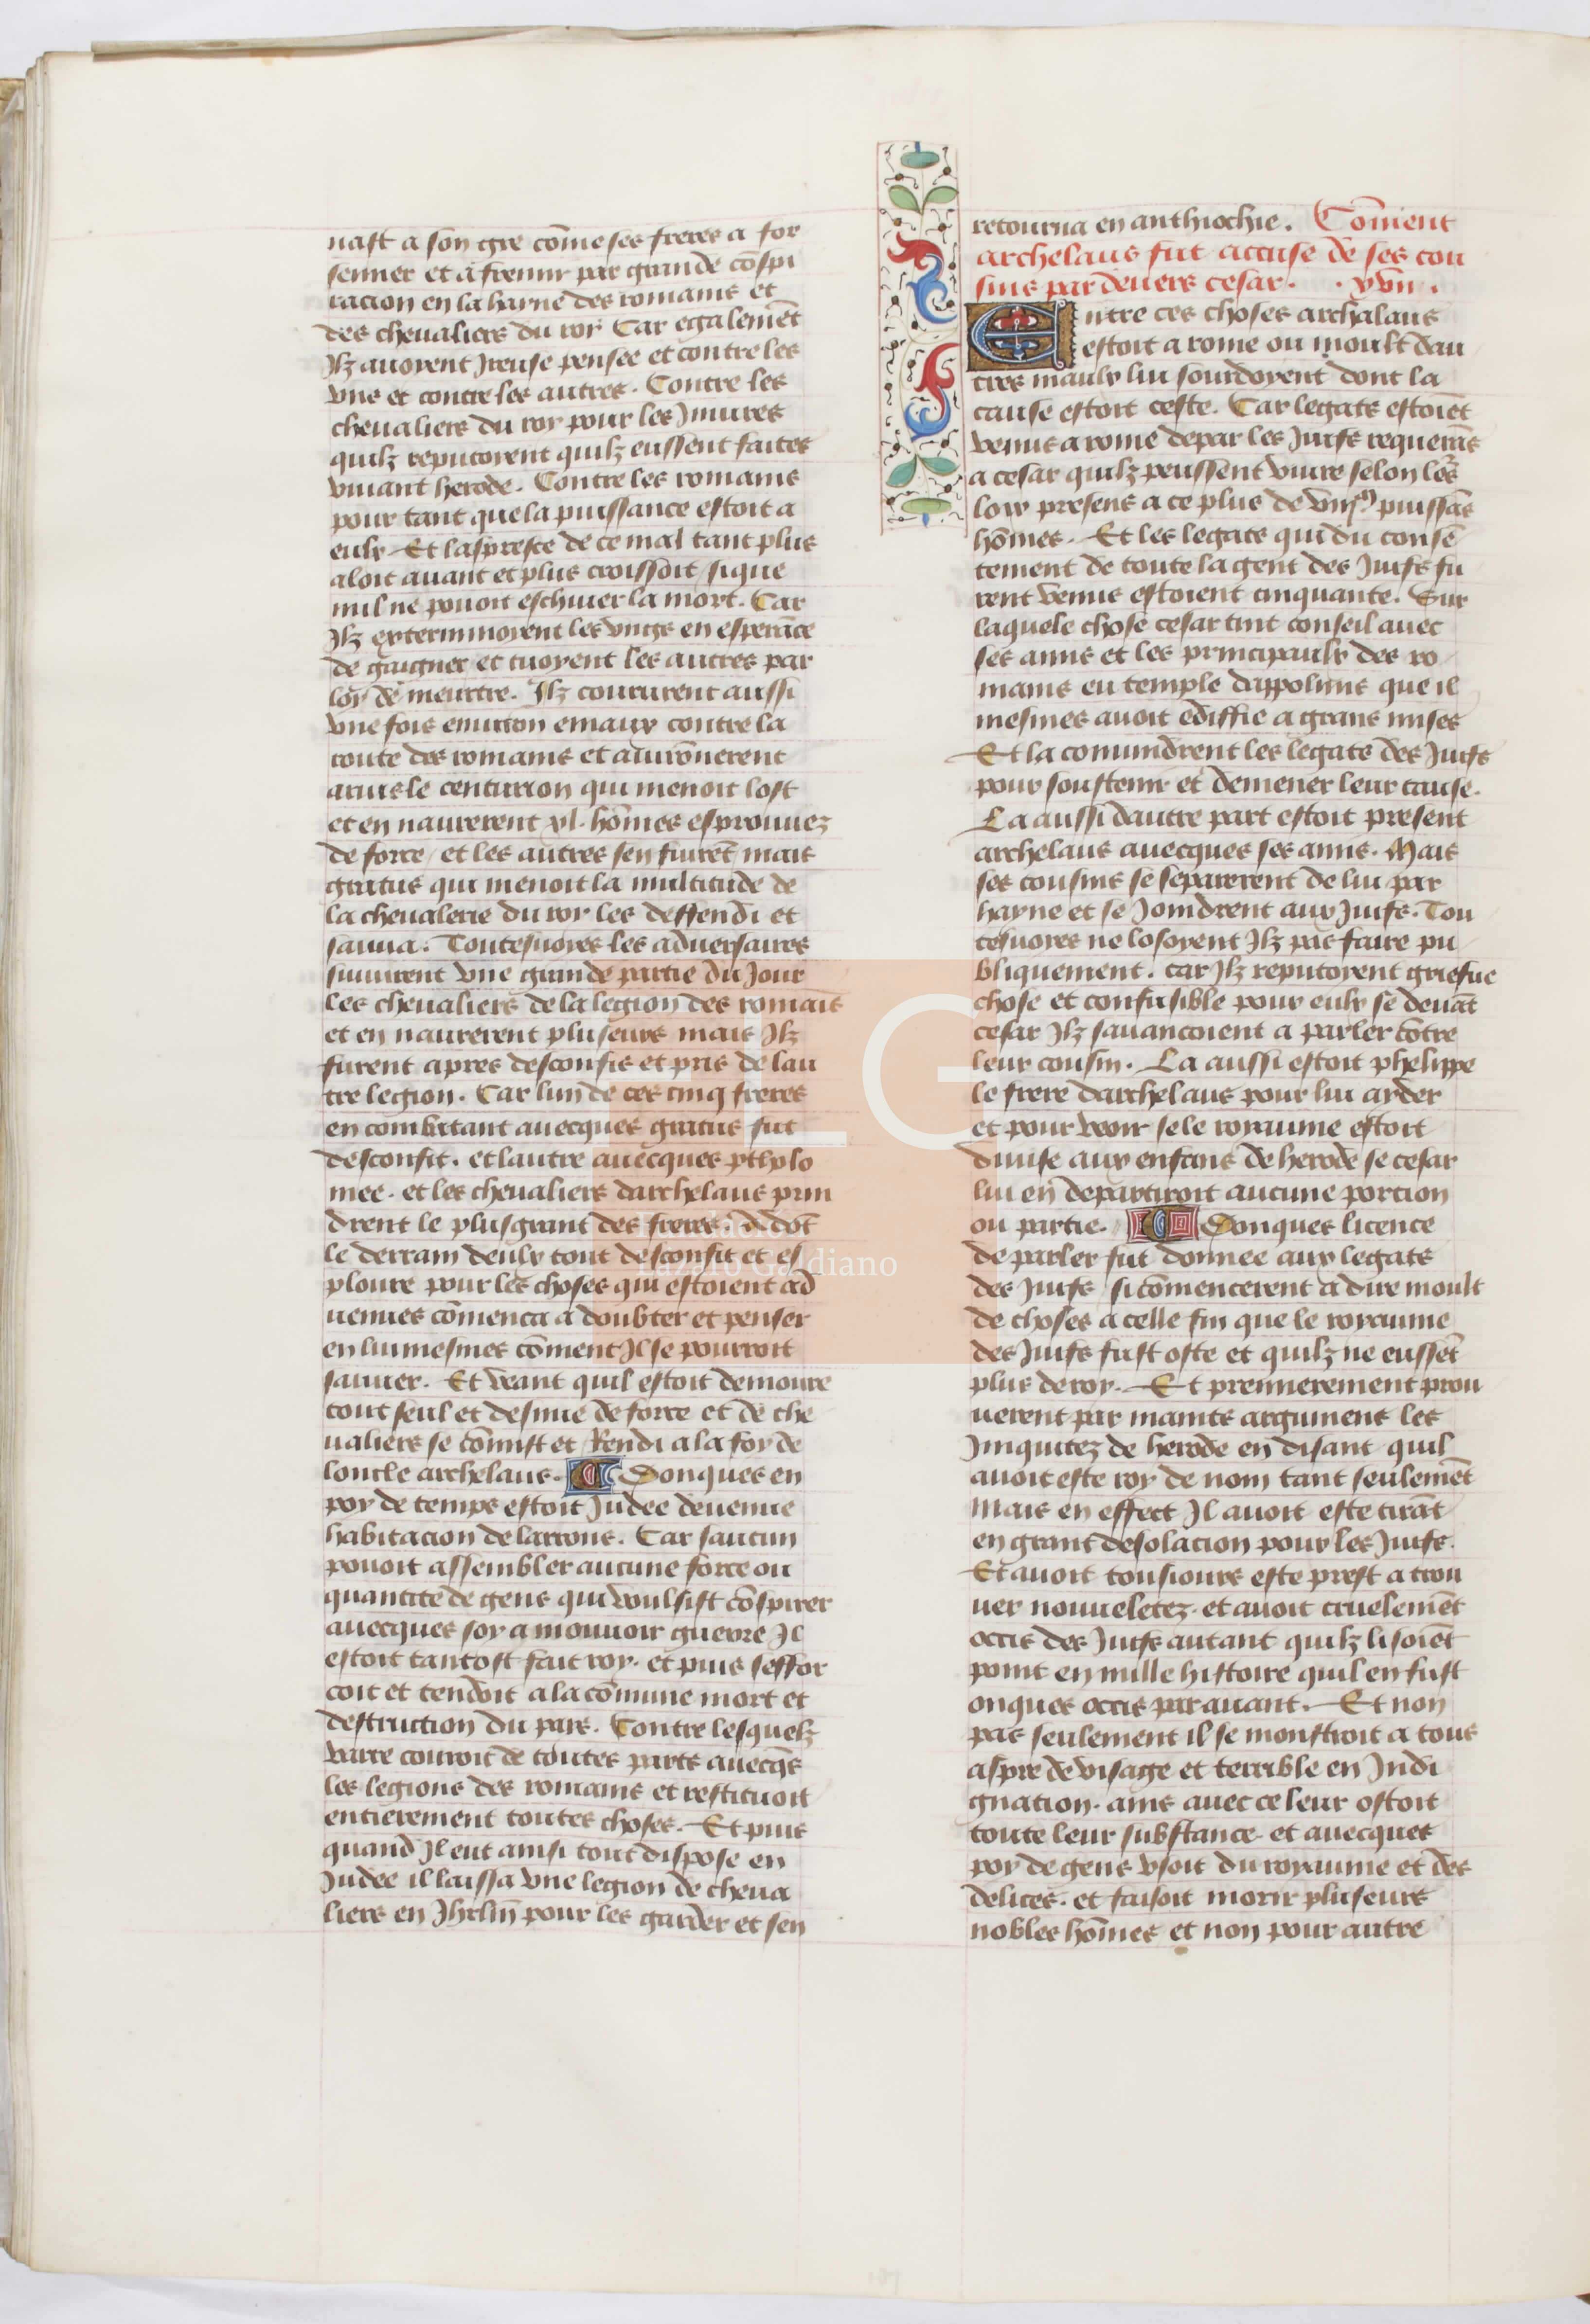 nast a son gre cōme ses freres a for
senner et a fremir par grande cōspi
racion en la hayne des romains et
des chevaliers du roy Car egalemēt
Ilz avoyent Ireuse pensee et contre les
vns et contre les autres. Contre les
chevaliers du roy pour les Iniures
quilz reputoyent quilz eussent faites
viuant herode. Contre les romains
pour tant que la puissance estoit a
eulx Et laspreste de ce mal tant plus
aloit auant et plus croissoit sique
nul ne pouoit eschiuer la mort. Car
Ilz exterminoyent les vngs en esperāce
de gaigner et tuoyent les autres par
loy de meurtre. Ilz coururent aussi
vne fois enuiron emaux contre la
route des romains et auirōnerent
arrius le centurion qui menoit lost
et en naurerent xl. hōmes esprouuez
de force et les autres sen fuirēt mais
gratus qui menoit la multitude de
la cheualerie du roy les deffendi et
sauua. Toutesuoyes les aduersaires
suiuirent vne grande partie du Jour
les cheualiers de la legion des romais
et en naurerent pluseurs mais Ilz
furent apres desconfis et pris de lau
tre legion. Car lun de ces cinq freres
en combatant auecques gratus fut
desconfit. et lautre auecques ptholo
mee. et les cheualiers darchelaus prin
drent le plus grant des freres. Adōt
le derrain deulx tout desconfit et es
ploure pour les choses qui estoient ad
uenues cōmenca a doubter et penser
en lui mesmes cōment Il se pourroit
sauuer. Et veant quil estoit demoure
tout seul et desnue de force et de che
ualiers se cōmist et Rendi a la foy de
loncle archelaus. Donques en
poy de temps estoit Judee deuenue
habitacion de larrons. Car saucun
pouoit assembler aucune force ou
quantite de gens qui voulsist cōspirer
auecques soy a mouuoir guerre Il
estoit tantost fait roy. et puis seffor
coit et tendoit a la cōmune mort et
destruction du pais. Contre lesquelz
varre couroit de toutes parts auecqs
les legions des romains et restituoit
entierement toutes choses. Et puis
quand Il eut ainsi tout dispose en
Judee il laissa vne legion de cheua
liers en Jhrlm̄ pour les garder et sen
retourna en anthiochie. Cōment
archelaus fut accuse de ses cou
sins par deuers cesar. . xvii .
Entre ces choses archalaus
estoit a rome ou moult dau
tres maulx lui sourdoyent dont la
cause estoit ceste. Car legats estoiēt
venus a rome depar les Juifs requerās
a cesar quilz peussent viure selon lōr
loix presens a ce plus de viijm puissās
hōmes. Et les legats qui du consē
tement de toute la gent des Juifs fu
rent venus estoient cinquante. Sur
laquele chose cesar tint conseil auec
ses amis et les principaulx des ro
mains eu temple dappolins que il
mesmes auoit ediffie a grans mises
Et la conuindrent les legats des Juifs
pour soustenir et demener leur cause.
La aussi dautre part estoit present
archelaus auecques ses amis. Mais
ses cousins se separerent de lui par
hayne et se Joindrent aux Juifs. Tou
tesuoyes ne losoyent Ilz pas faire pu
bliquement. car Ilz reputoyent griefue
chose et confusible pour eulx se deuāt
cesar Ilz sauancoient a parler cōtre
leur cousin. La aussi estoit phelippe
le frere darchelaus pour lui ayder
et pour veoir se le royaume estoit
diuise aux enfans de herode se cesar
lui en departiroit aucune porcion
ou partie. Donques licence
de parler fut donnee aux legats
des Juifs si cōmencerent a dire moult
de choses a celle fin que le royaume
des Juifs fust oste et quilz ne eussēt
plus de roy. Et premierement prou
uerent par maints argumens les
Iniquitez de herode en disant quil
auoit este roy de nom tant seulemēt
mais en effect Il auoit este tirāt
en grant desolacion pour les Juifs.
Et auoit tousiours este prest a trou
uer nouueletez. et auoit cruelemēt
occis des Juifs autant quilz lisoiēt
point en mille histoire quil en fust
onques occis par auant. Et non
pas seulement il se monstroit a tous
aspre de visage et terrible en Indi
gnation. ains auec ce leur ostoit
toute leur substance. et auecques
poy de gens vsoit du royaume et des
delices. et faisoit morir pluseurs
nobles hōmes et non pour autre
FLG
Lázaro Galdiano